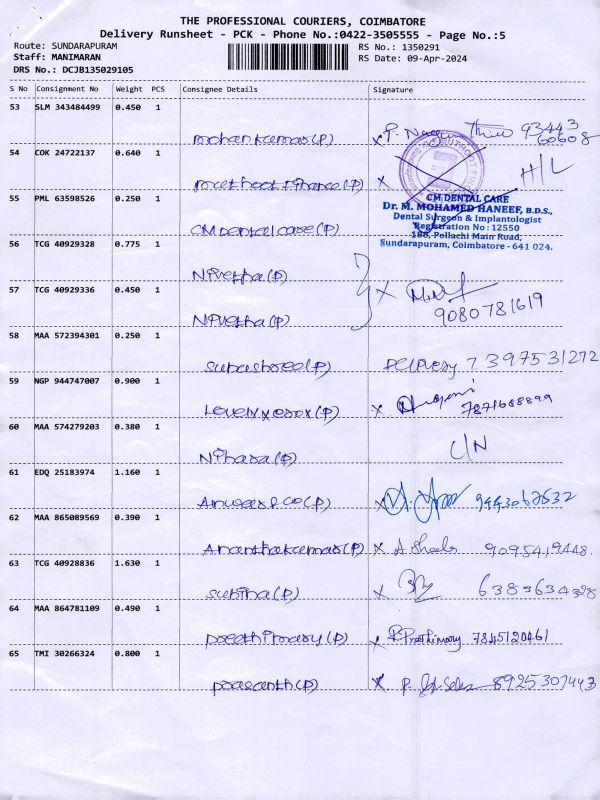 THE PROFESSIONAL COURIERS, COIMBATORE
Delivery Runsheet - PCK - Phone No.:0422-3505555 - Page No.:5
Route: SUNDARAPURAM RS No.: 1350291
Staff: MANIMARAN RS Date: 09-Apr-2024
DRS No.: DCJB135029105
S No Consignment No Weight PCS Consignee Details Signature
53 SLM 343484499 0.450 1
mohankumar(P) x P. 93443
60608
54 COK 24722137 0.640 1 H/L
muthoot finance(P) x
55 PML 63598526 0.250 1 CM DENTAL CARE
Dr. M. MOHAMED HANEEF, B.D.S.,
Dental Surgeon & Implantologist
CM Dental care(P) Registration No : 12550
56 TCG 40929328 0.775 1 188, Pollachi Main Road,
Sundarapuram, Coimbatore - 641 024.
Nivetha(P)
57 TCG 40929336 0.450 1 x
Nivetha(P) 9080781619
58 MAA 572394301 0.250 1
(P) Delivery 7397531272
59 NGP 944747007 0.900 1
(P) x 7871688899
60 MAA 574279203 0.380 1 C/N
Nihara(P)
61 EDQ 25183974 1.160 1
(P) x 9443062632
62 MAA 865089569 0.390 1
Ananthakumar(P) x A. 9095419448.
63 TCG 40928836 1.630 1
subitha(P) x 6383634328
64 MAA 864781109 0.490 1
preethimary(P) x Preethimary 7845120461
65 TMI 30266324 0.800 1
prasanth(P) x P. 8925307443